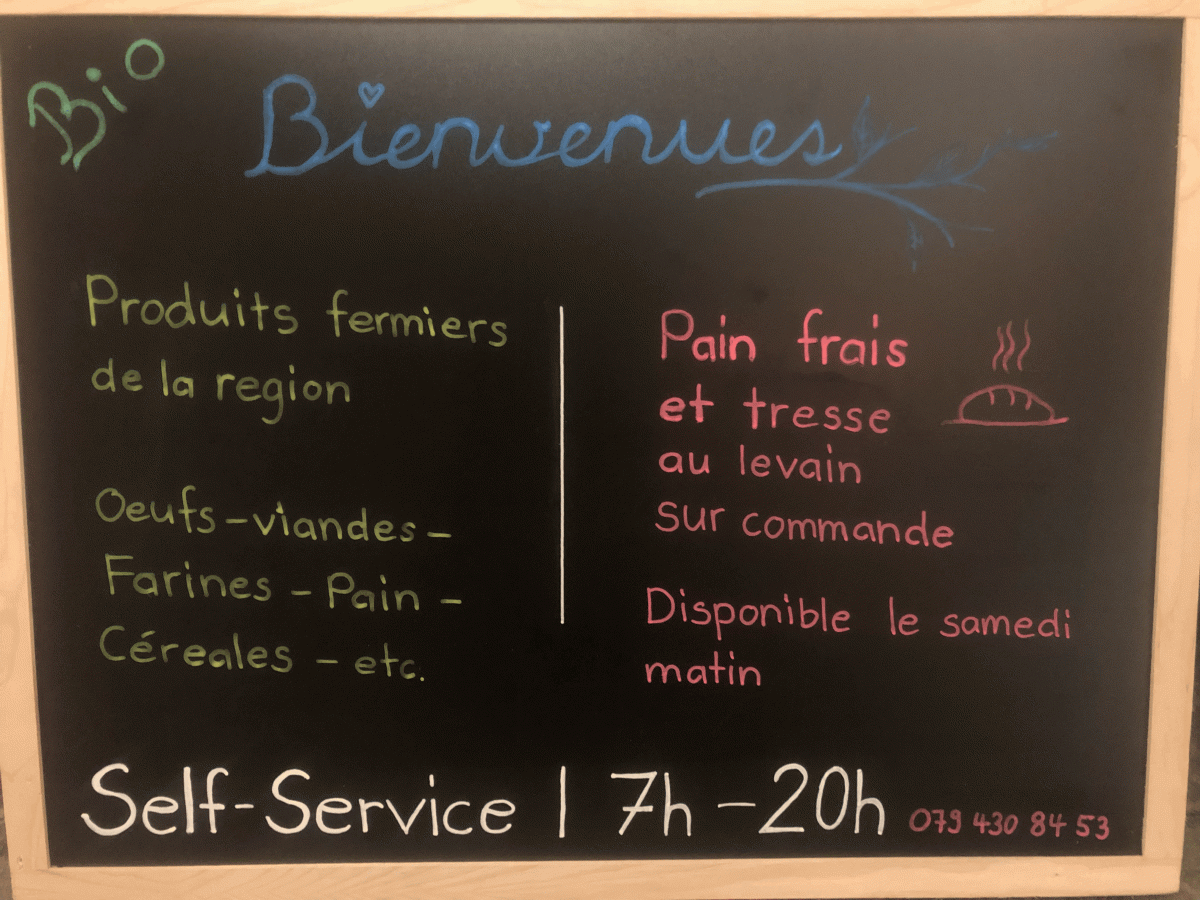 Bio
Bienvenues
Produits fermiers
de la region
Oeufs - viandes -
Farines - Pain -
Céreales - etc.
Pain frais
et tresse
au levain
sur commande
Disponible le samedi
matin
Self-Service | 7h - 20h
079 430 84 53